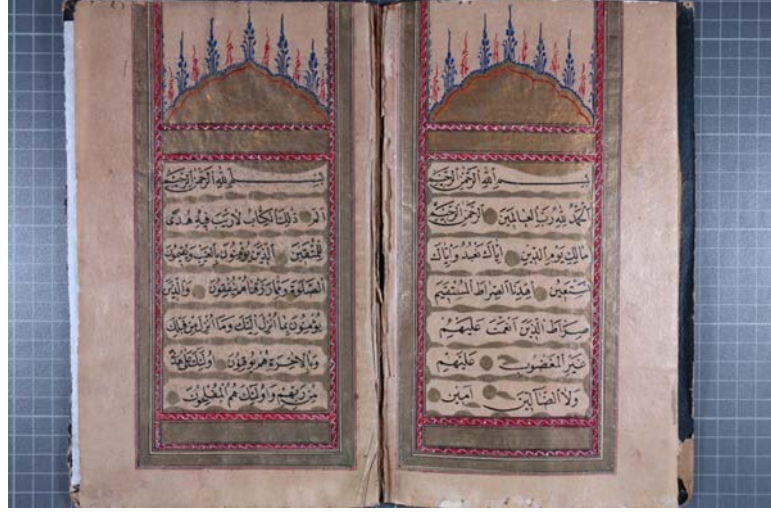 بسم الله الرحمن الرحيم
الحمد لله رب العالمين الرحمن الرحيم
مالك يوم الدين اياك نعبد واياك
نستعين اهدنا الصراط المستقيم
صراط الذين انعمت عليهم
غير المغضوب عليهم
ولا الضالين آمين
بسم الله الرحمن الرحيم
الم ذلك الكتاب لا ريب فيه هدى
للمتقين الذين يؤمنون بالغيب ويقيمون
الصلوة ومما رزقناهم ينفقون والذين
يؤمنون بما انزل اليك وما انزل من قبلك
وبالاخرة هم يوقنون اولئك على هدى
من ربهم واولئك هم المفلحون